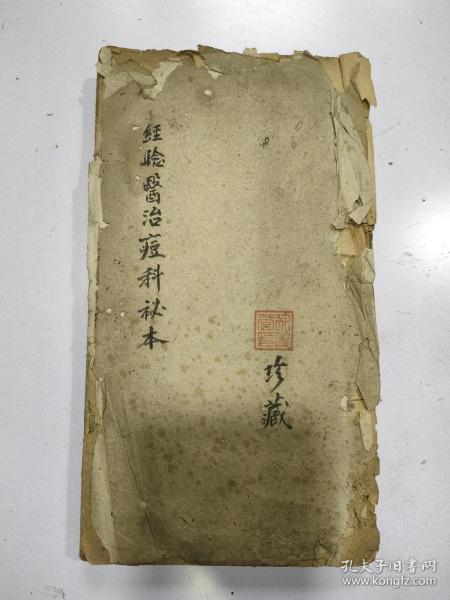 經驗醫治痘科祕本
珍藏
孔夫子旧书网
www.kongfz.com